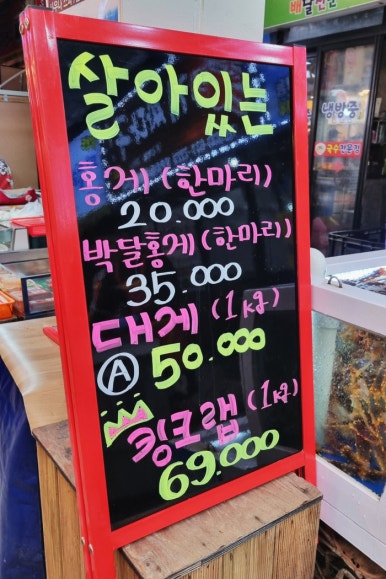 배달전문
살아있는
홍게 (한마리)
20.000
박달홍게 (한마리)
35.000
대게 (1kg)
Ⓐ 50.000
킹크랩 (1kg)
69.000
냉방중